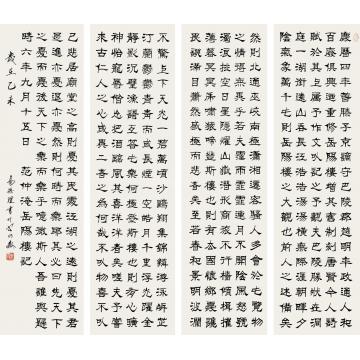 慶曆四年春滕子京謫守巴陵郡越明年政通人和
百廢具興乃重修岳陽樓增其舊制刻唐賢今人詩
賦於其上屬予作文以記之予觀夫巴陵勝狀在洞
庭一湖銜遠山吞長江浩浩湯湯橫無際涯朝暉夕
陰氣象萬千此則岳陽樓之大觀也前人之述備矣
然則北通巫峽南極瀟湘遷客騷人多會於此覽物
之情得無異乎若夫霪雨霏霏連月不開陰風怒號
濁浪排空日星隱曜山岳潛形商旅不行檣傾楫摧
薄暮冥冥虎嘯猿啼登斯樓也則有去國懷鄉憂讒
畏譏滿目蕭然感極而悲者矣至若春和景明波瀾
不驚上下天光一碧萬頃沙鷗翔集錦鱗游泳岸芷
汀蘭鬱鬱青青而或長煙一空皓月千里浮光躍金
靜影沉璧漁歌互答此樂何極登斯樓也則有心曠
神怡寵辱偕忘把酒臨風其喜洋洋者矣嗟夫予嘗
求古仁人之心或異二者之為何哉不以物喜不以
己悲居廟堂之高則憂其民處江湖之遠則憂其君
是進亦憂退亦憂然則何時而樂耶其必曰先天下
之憂而憂後天下之樂而樂乎噫微斯人吾誰與歸
時六年九月十五日 范仲淹岳陽樓記
歲在乙未